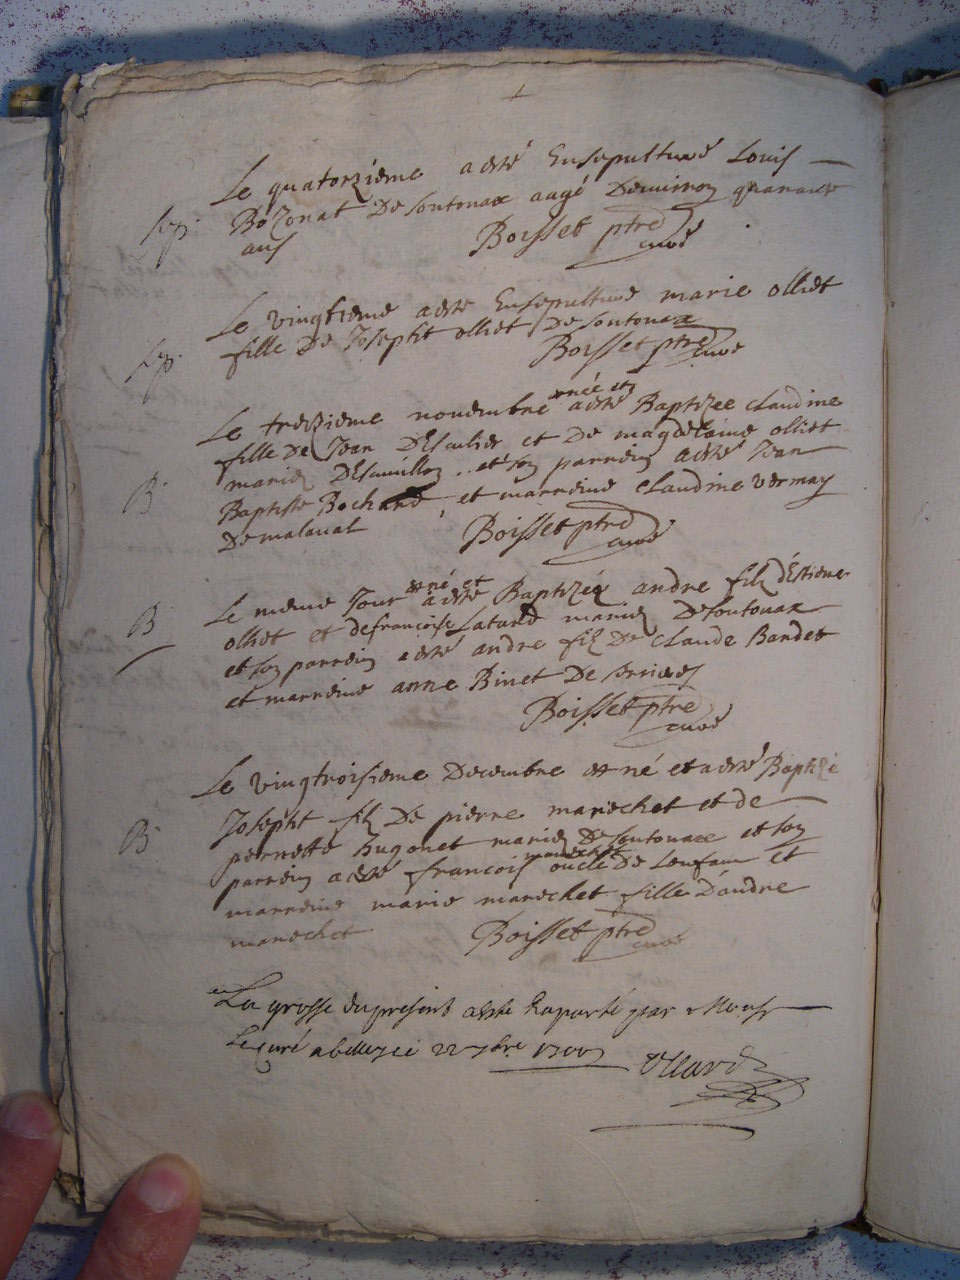 Le quatorzieme a esté Ensepulturé Louis
sep. Bozonat De soutonax aagé Denviron quarante
ans Boisset ptre curé
Le vingtieme a esté Ensepulturé marie olliet
sep. fille De Josepht olliet De soutonax
Boisset ptre curé
Le treizieme novembre est née et a esté Baptizee claudine
fille De Jean et De magdelaine olliet
B. mariez et son parrein a esté Jean
Baptiste Bochard, et marreine claudine vermay
De malaval Boisset ptre curé
Le meme Jour est né et a esté Baptizée andre filz d'Estiene
B olliet et de francoise Latard mariez De soutonax
et son parrein a esté andre filz De claude Bandet
et marreine anne Binet De serrieres
Boisset ptre curé
Le vingtroisieme Decembre est né et a esté Baptizé
B. Josepht filz De pierre marechet et de
pernette hugonet mariez De soutonax et son
parrein a esté francois marechet oncle De Lenfant et
marreine marie marechet fille D'andre
marechet Boisset ptre curé
La grosse du present a esté Raporté par Monsr
Le curé a belley ce 22 7bre